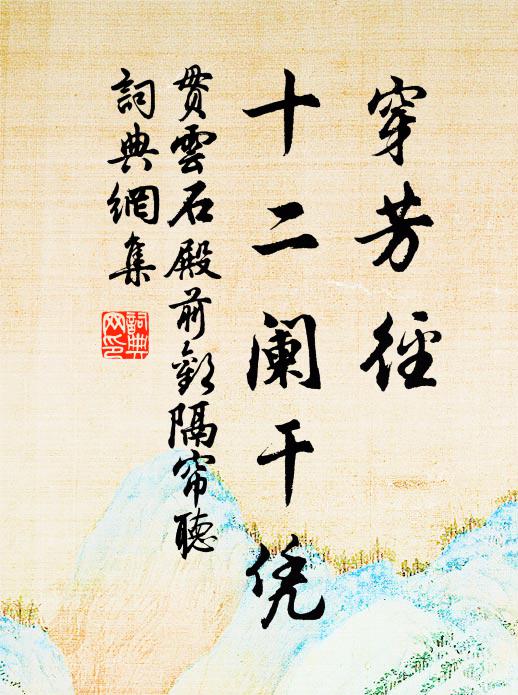 穿芳径
十二阑干凭
贯雲石殿前歡隔帘聴
詞典網集
詞典
网印